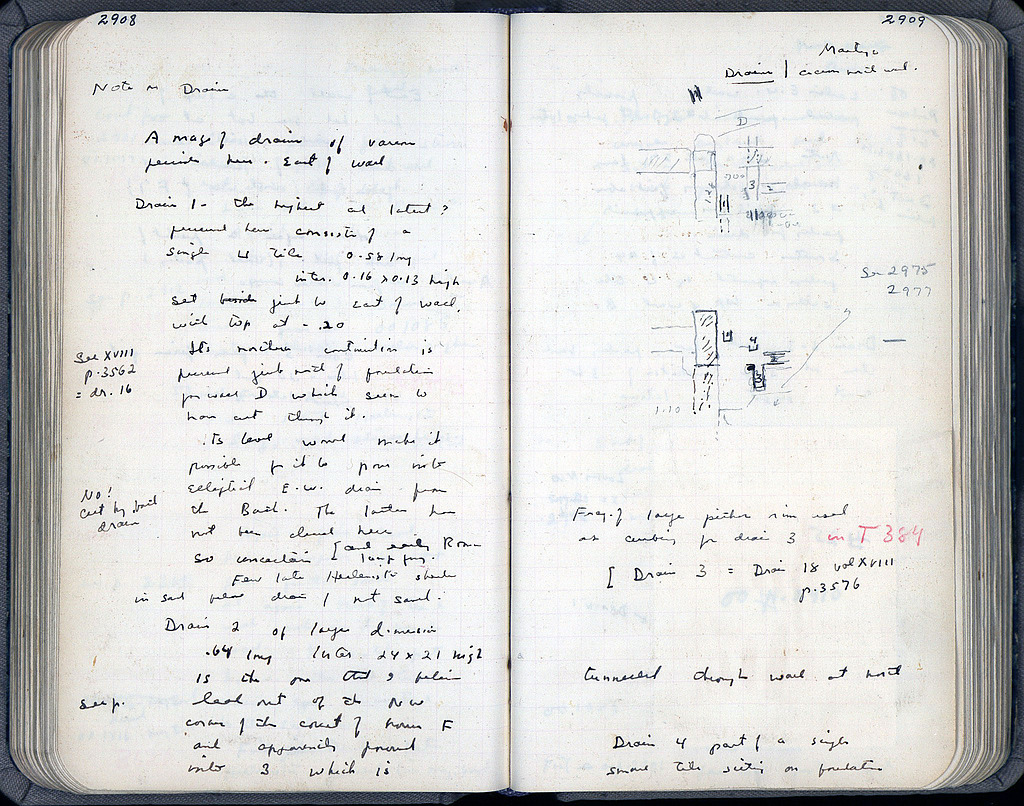 2908
Note on Drain
A mass of drains of various
periods here. East of wall
Drain 1 - the highest and latest?
preserved here consists of a
single U tile 0.58 long
inter. 0.16 x 0.13 high
set just to east of wall,
with top at - .20
See XVIII
p. 3562
= dr. 16
Its northern continuation is
preserved just north of foundation
for wall D which seems to
have cut through it.
Its level would make it
possible for it to pour into
elliptical E.W. drain from
the Basil. The latter has
not been cleared here
No!
cut by
drain
so uncertain [and early Roman
lamp frg.
Few late Hellenistic sherds
in sand drain / not sand.
Drain 2 of larger dimension
.64 long Inter. 24 x 21 high
is the one that
See p.
lead out of the NW
corner of the court of house F
and apparently poured
into 3 which is
2909
Drain / north wall.
D
3
2
See 2975
2977
4
2
3
1.10
Frag. of large pithos rim used
as curbing for drain 3 in T 384
[Drain 3 = Drain 18 vol XVIII
p. 3576
tunneled through wall at north
Drain 4 part of a single
small tile sitting on foundation